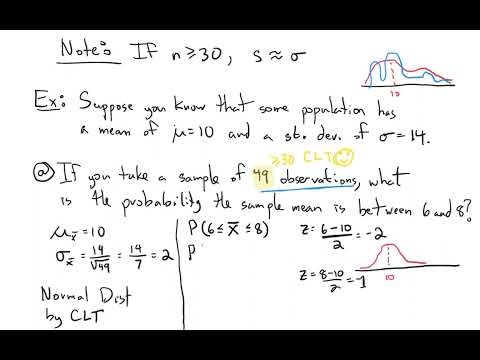 Note: IF n≥30, s≈σ
10
Ex: Suppose you know that some population has
a mean of μ=10 and a std. dev. of σ=14.
≥30 CLT
ⓐ If you take a sample of 49 observations, what
is the probability the sample mean is between 6 and 8?
μx̄ = 10
σx̄ = 14/√49 = 14/7 = 2
Normal Dist
by CLT
P(6 ≤ X̄ ≤ 8)
P
z = 6-10/2 = -2
10
z = 8-10/2 = -1